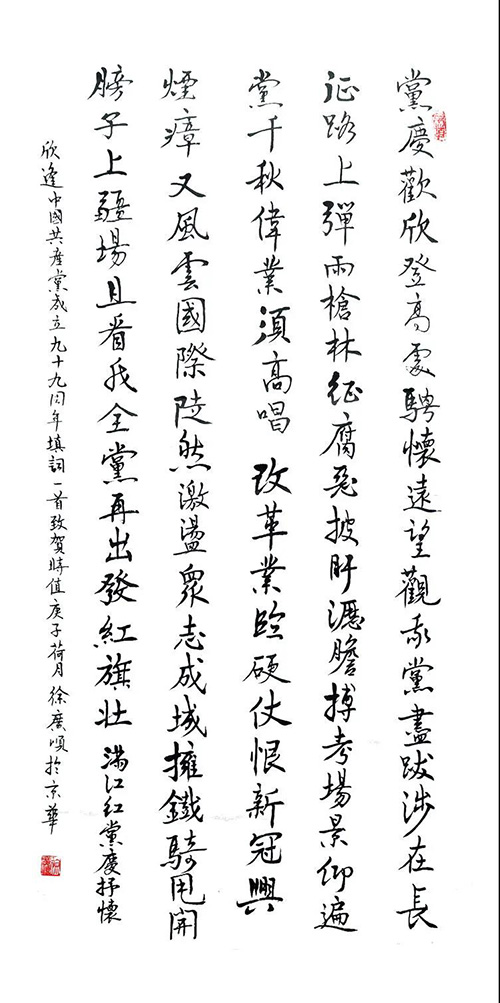 黨慶歡欣登高處騁懷遠望觀我黨盡跋涉在長
征路上彈雨槍林征腐惡披肝瀝膽搏考場景仰遍
黨千秋偉業須高唱 改革業臨硬仗恨新冠興
煙瘴又風雲國際陡然激盪眾志成城擁鐵騎甩開
膀子上疆場且看我全黨再出發紅旗壯 滿江紅黨慶抒懷
欣逢中國共產黨成立九十九周年填詞一首致賀時值庚子荷月徐廣順於京華